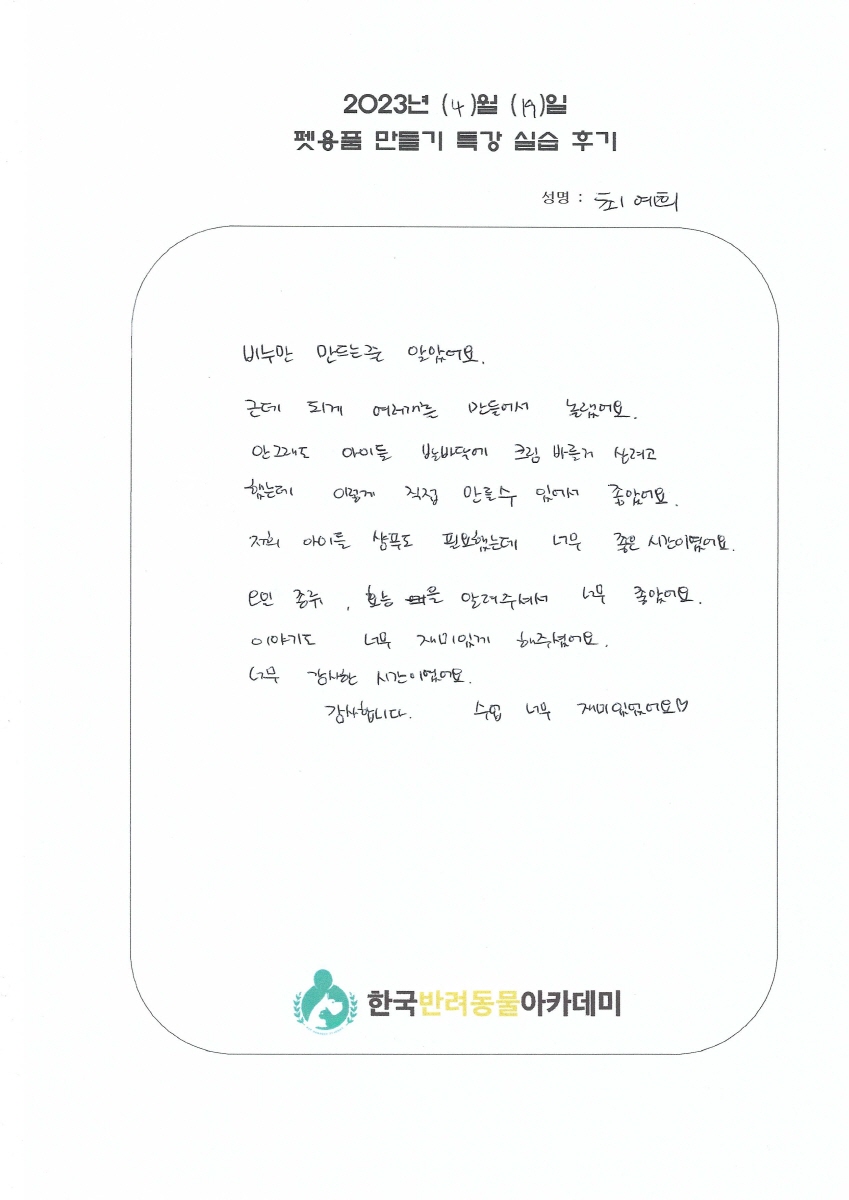 2023년 (4)월 (19)일
펫용품 만들기 특강 실습 후기
성명 : 최예희
비누만 만드는줄 알았어요.
근데 되게 여러개를 만들어서 놀랬어요.
안그래도 아이들 발바닥에 크림 바를거 살려고
했는데 이렇게 직접 만들수 있어서 좋았어요.
저희 아이들 샴푸도 필요했는데 너무 좋은 시간이였어요.
종류, 효능 을 알려주셔서 너무 좋았어요.
이야기도 너무 재미있게 해주셨어요.
너무 감사한 시간이었어요.
감사합니다. 수업 너무 재미있었어요♡
한국반려동물아카데미